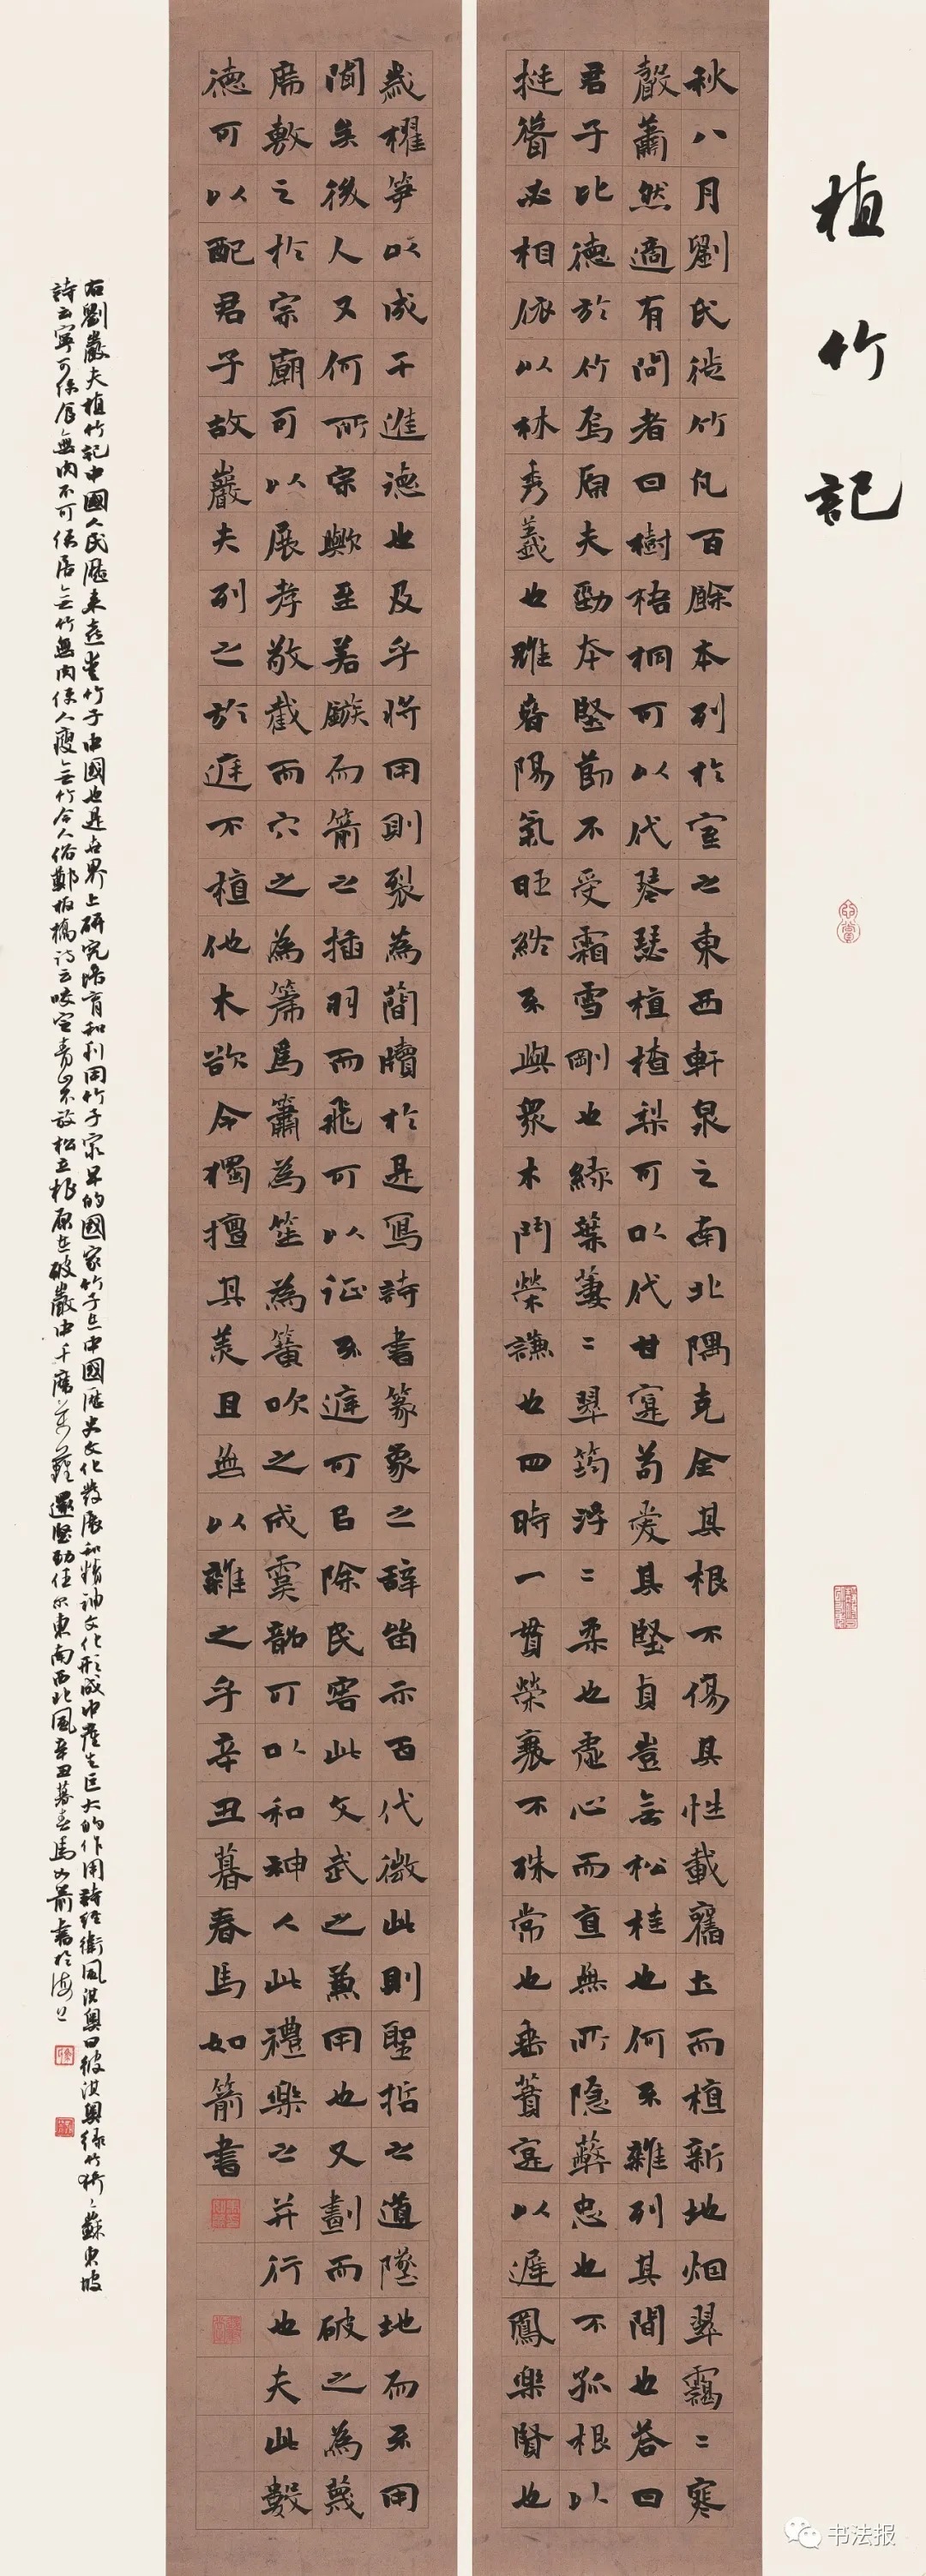 植竹記
秋八月劉氏徙竹凡百餘本列於室之東西軒泉之南北隅克全其根不傷其性載舊土而植新地烟翠靄〻寒
聲蕭然適有問者曰樹梧桐可以代琴瑟植楂梨可以代甘寔苟愛其堅貞豈無松桂也何不雜列其間也答曰
君子比德於竹焉原夫勁本堅節不受霜雪剛也緑葉萋〻翠筠浮〻柔也虛心而直無所隱蔽忠也不孤根以
挺聳必相依以林秀義也雖春陽氣旺終不與衆木鬥榮謙也四時一貫榮衰不殊常也垂蕡寔以遲鳳樂賢也
歲櫂筍以成干進德也及乎將用則裂為簡牘於是寫詩書篆象之辭留示百代微此則聖哲之道墜地而不用
聞矣後人又何所宗歟至若鏃而箭之插羽而飛可以征不庭可以除民害此文武之兼用也又劃而破之為蔑
席敷之於宗廟可以展孝敬截而穴之為篪爲簫為笙為簧吹之成虞韶可以和神人此禮樂之并行也夫此數
德可以配君子故巖夫列之於庭不植他木欲令獨擅其美且無以雜之乎辛丑暮春馬如箭書
右劉巖夫植竹記中國人民歷來喜愛竹子中國也是世界上研究培育和利用竹子最早的國家竹子在中國歷史文化發展和精神文化形成中產生巨大的作用詩經衛風淇奧曰彼淇奧緑竹猗〻蘇東坡
詩云寧可食無肉不可使居無竹無肉使人瘦無竹令人俗鄭板橋詩云咬定青山不放松立根原在破巖中千磨萬擊還堅勁任尔東南西北風辛丑暮春馬如箭書於海上
书法报